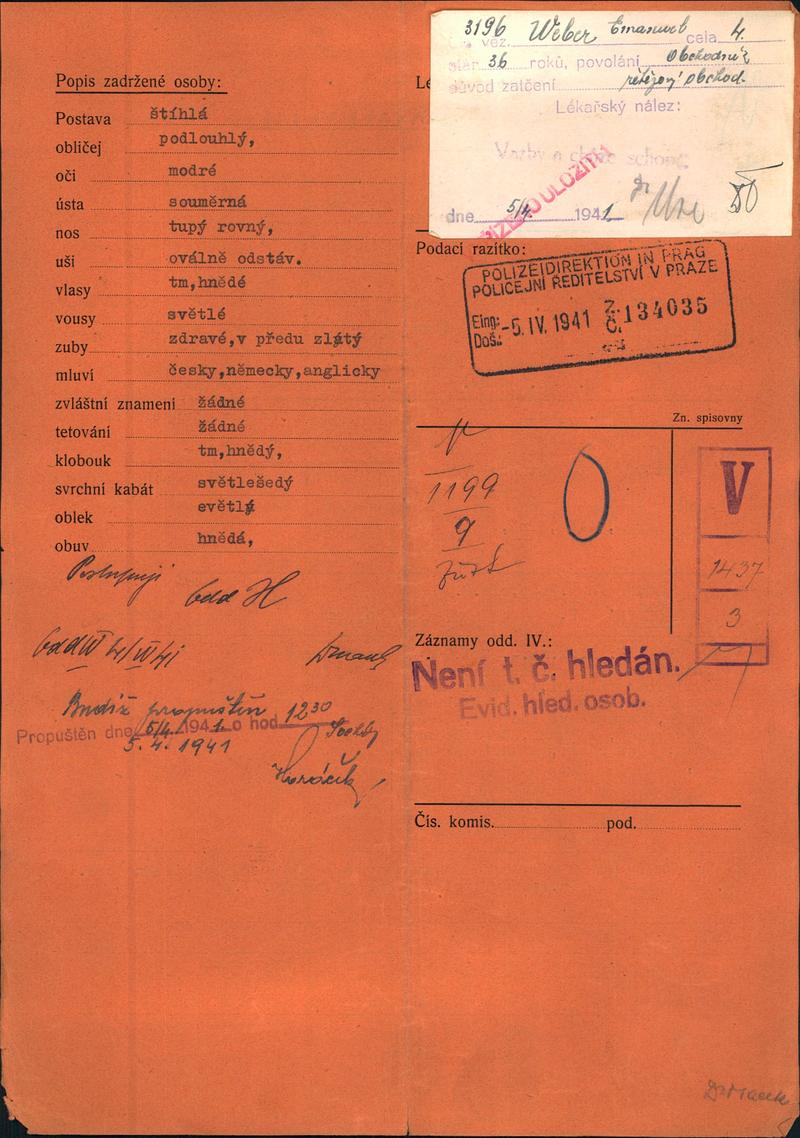 Popis zadržené osoby:
Postava štíhlá
obličej podlouhlý,
oči modré
ústa souměrná
nos tupý rovný,
uši oválně odstáv.
vlasy tm,hnědé
vousy světlé
zuby zdravé,v předu zlatý
mluví česky,německy,anglicky
zvláštní znamení žádné
tetování žádné
klobouk tm,hnědý,
svrchní kabát světlešedý
oblek světlý
obuv hnědá,
Postupuji
odd H
Budiž propuštěn
Propuštěn dne 5/4 1941 o hod. 12 30
5. 4. 1941
Horáček
3196 Weber Emanuel cela 4.
věz.
stár 36 roků, povolání obchodník
důvod zatčení řetězový obchod.
Lékařský nález:
Vazby a práce schopen
dne 5/4 1941
Podací razítko:
POLIZEIDIREKTION IN PRAG
POLICEJNÍ ŘEDITELSTVÍ V PRAZE
Eing: Doš.: -5. IV. 1941 Z. Č. 134035
Zn. spisovny
1199
9
V
1437
3
Záznamy odd. IV.:
Není t. č. hledán.
Evid. hled. osob.
Čís. komis. pod.